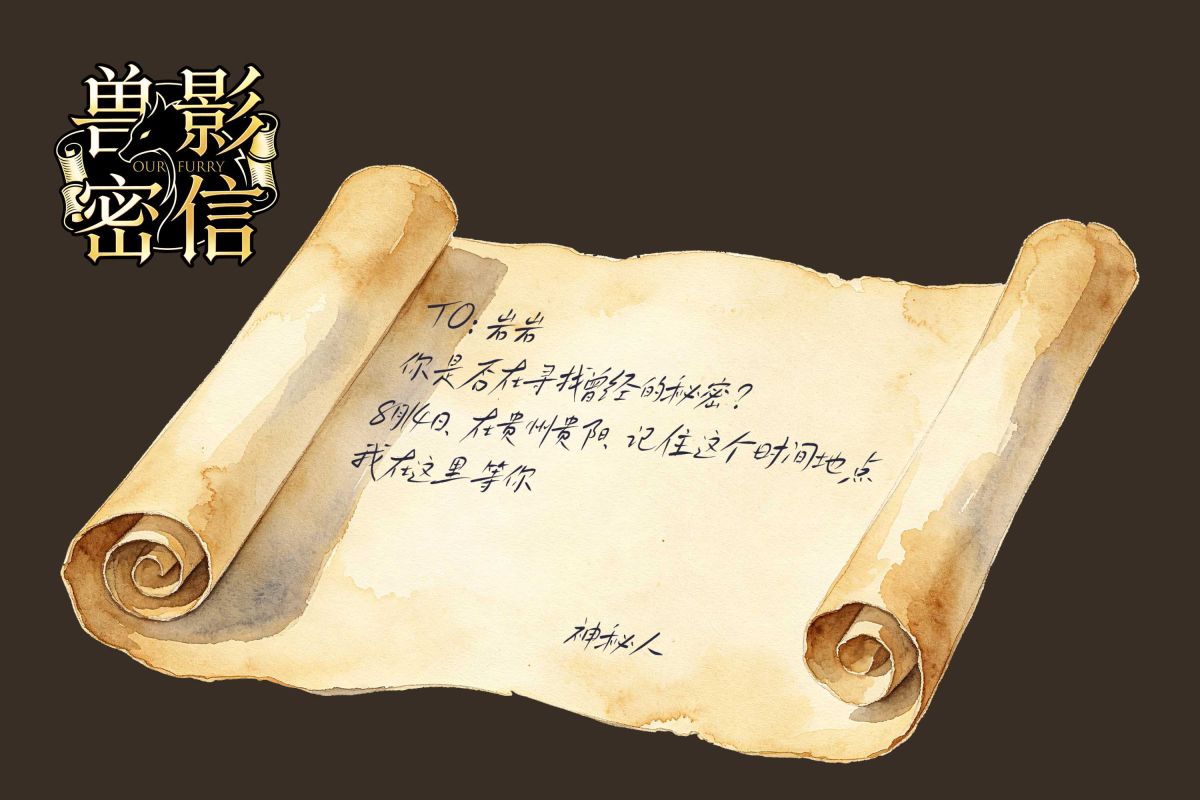 兽影
OUR FURRY
密信
TO：岩岩
你是否在寻找曾经的秘密？
8月14日、在贵州贵阳、记住这个时间地点
我在这里等你
神秘人